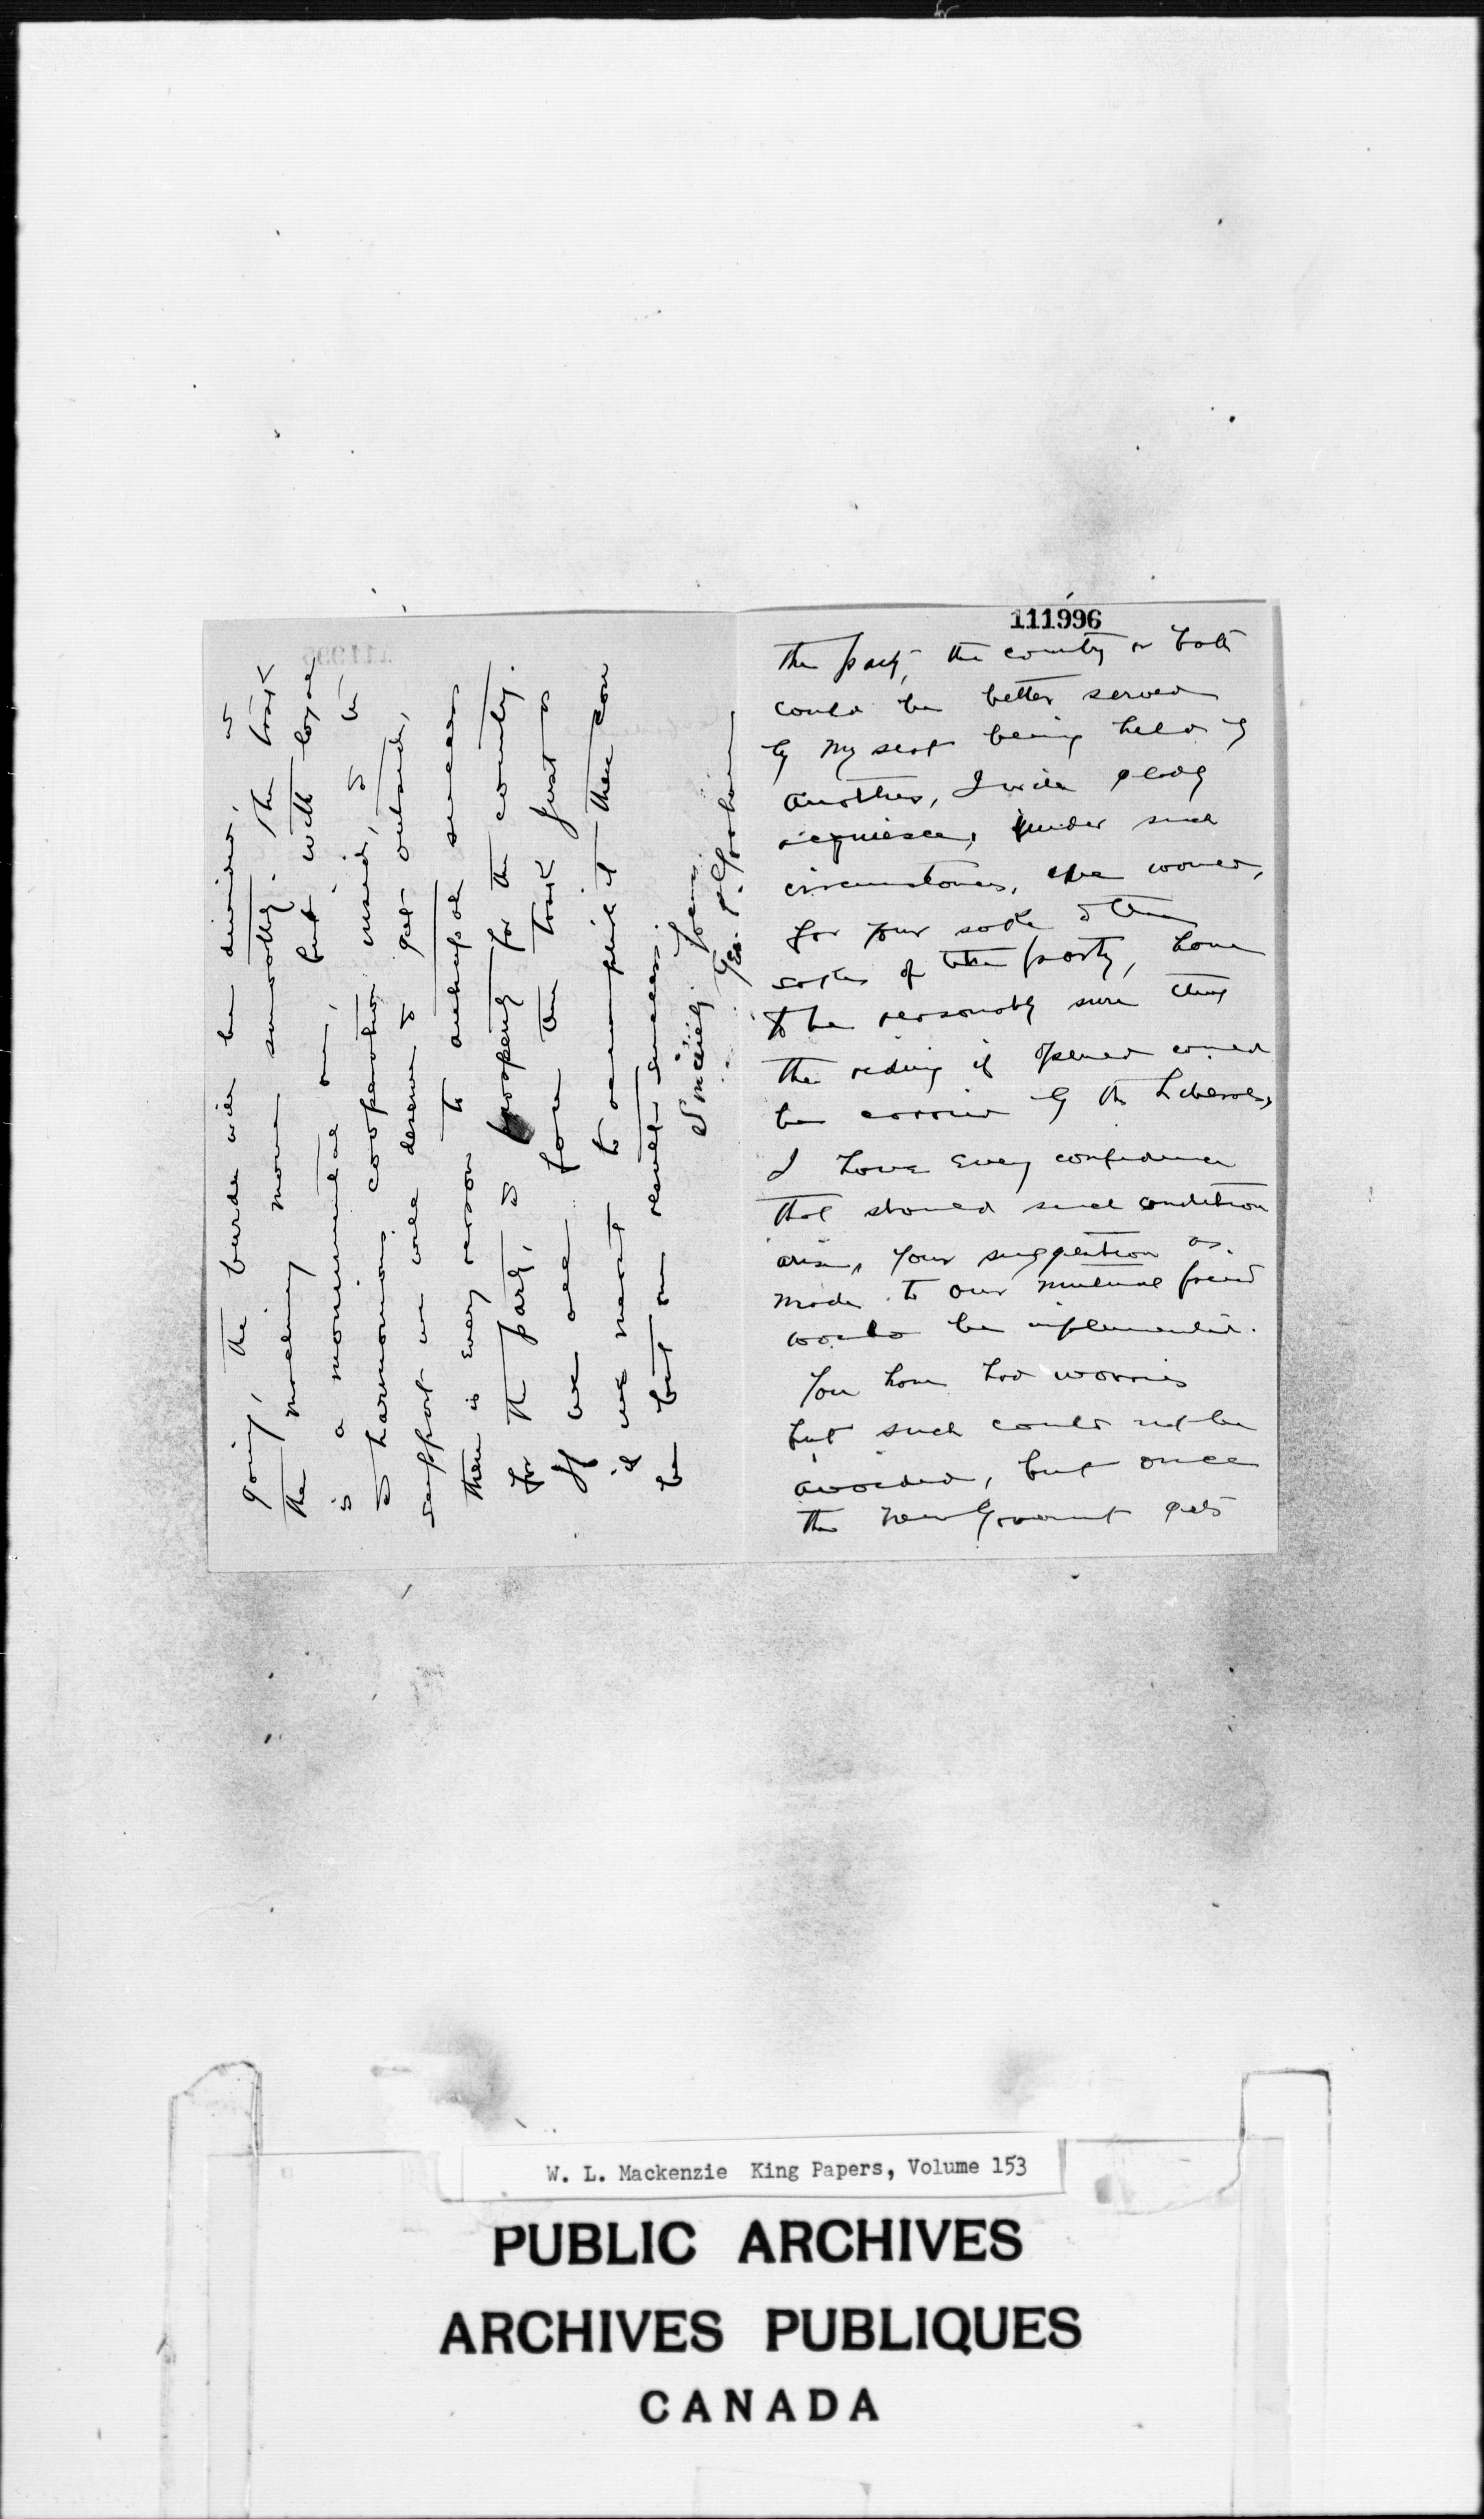 111996
the party, the country or both
could be better served
by my seat being held by
another, I will gladly
acquiesce, under such
circumstances, we would,
for your sake & the
sake of the party, have
to be reasonably sure that
the riding if opened could
be carried by the Liberals,
I have every confidence
that should such condition
arise, your suggestion as
made to our mutual friend
would be implemented.
You have had worries
but such could not be
avoided, but once
the new Government gets
going, the burden will be divided, &
the machinery move smoothly. The task
is a monumental one, but with loyal
& harmonious cooperation inside, & the
support we will deserve & get outside,
there is every reason to anticipate success
for the party, & prosperity for the country.
If we all face the task just as
if we meant to accomplish it there can
be but one result success.
Sincerely Yours
Geo. P. Graham
W. L. Mackenzie King Papers, Volume 153
PUBLIC ARCHIVES
ARCHIVES PUBLIQUES
CANADA